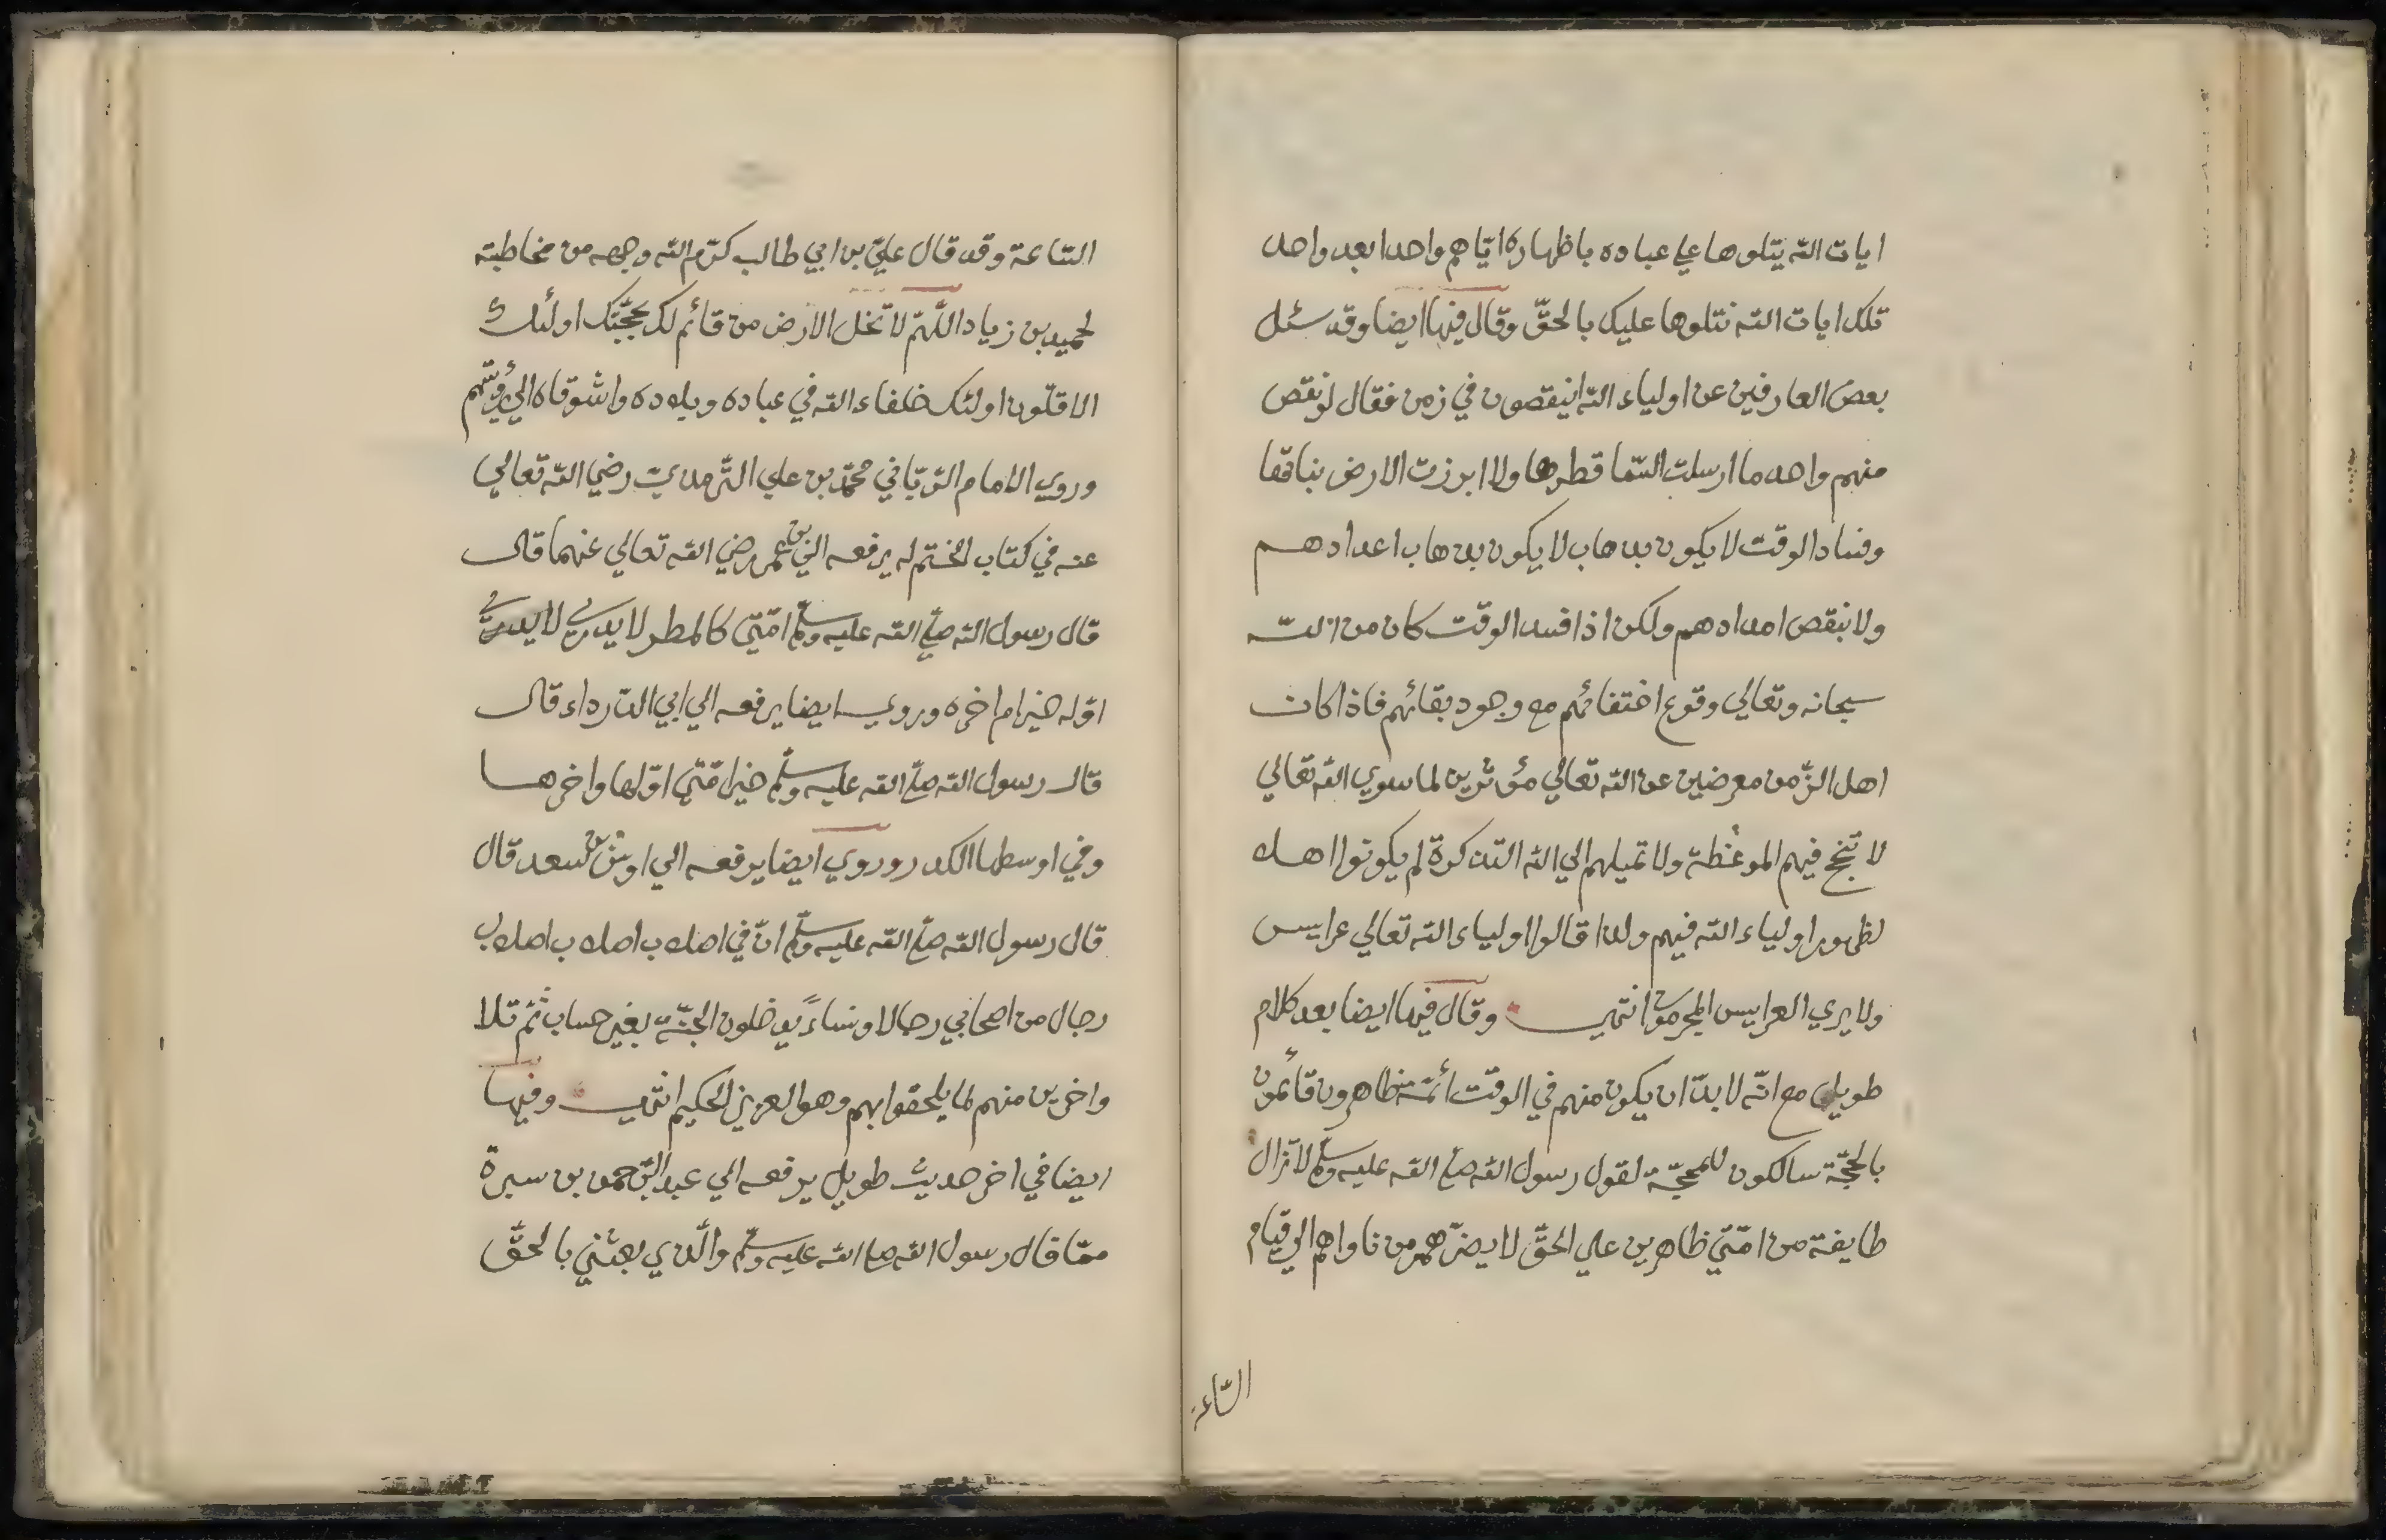 ايات الله يتلوها علي عباده باظهاره اياهم واحدا بعد واحد
تلك ايات الله نتلوها عليك بالحقّ وقال فيها ايضا وقد سئل
بعض العارفين عن اولياء الله اينقصون في زمن فقال لو نقص
منهم واحد ما ارسلت السّما قطرها ولا ابرزت الارض نباتها
وفساد الوقت لا يكون بذهاب لا يكون بذهاب اعدادهم
ولا بنقص امدادهم ولكن اذا فسد الوقت كان من الله
سبحانه وتعالي وقوع اختفائهم مع وجود بقائهم فاذا كان
اهل الزّمن معرضين عن الله تعالي مؤثرين لما سوي الله تعالي
لا تنجح فيهم الموعظة ولا تميلهم الي الله التذكرة لم يكونوا اهلا
لظهور اولياء الله فيهم ولذا قالوا اولياء الله تعالي عرايس
ولا يري العرايس المجرمون انتهي وقال فيها ايضا بعد كلام
طويل مع انّه لا بدّ ان يكون منهم في الوقت أئمّة ظاهرون قائمون
بالحجّة سالكون للمحجّة لقول رسول الله صلي الله عليه وسلّم لا تزال
طايفة من امّتي ظاهرين علي الحقّ لا يضرّهم من ناواهم الي قيام
السّاعة
السّاعة وقد قال عليّ بن ابي طالب كرّم الله وجهه من مخاطبته
لحميد بن زياد اللّهمّ لا تخل الارض من قائم لك بحجّتك اولئك
الاقلّون اولئك خلفاء الله في عباده وبلاده واشوقاه الي رؤيتهم
وروي الامام الرّبّاني محمّد بن علي التّرمذيّ رضي الله تعالي
عنه في كتاب الختم له يرفعه الي بن عمر رضي الله تعالي عنهما قال
قال رسول الله صلي الله عليه وسلّم امّتي كالمطر لا يدري لا يدري
اوّله خير ام اخره وروي ايضا يرفعه الي ابي الدّرداء قال
قال رسول الله صلّي الله عليه وسلّم خير امّتي اوّلها واخرها
وفي اوسطها الكدر وروي ايضا يرفعه الي بن سعد قال
قال رسول الله صلّي الله عليه وسلّم انّ في اصلاب اصلاب اصلاب
رجال من اصحابي رجالا ونساءً يدخلون الجنّة بغير حساب ثمّ تلا
واخرين منهم لمّا يلحقوا بهم وهو العزيز الحكيم انتهي وفيها
ايضا في اخر حديث طويل يرفعه الي عبد الرّحمن بن سبرة
ممّا قال رسول الله صلي الله عليه وسلّم والّذي بعثني بالحقّ